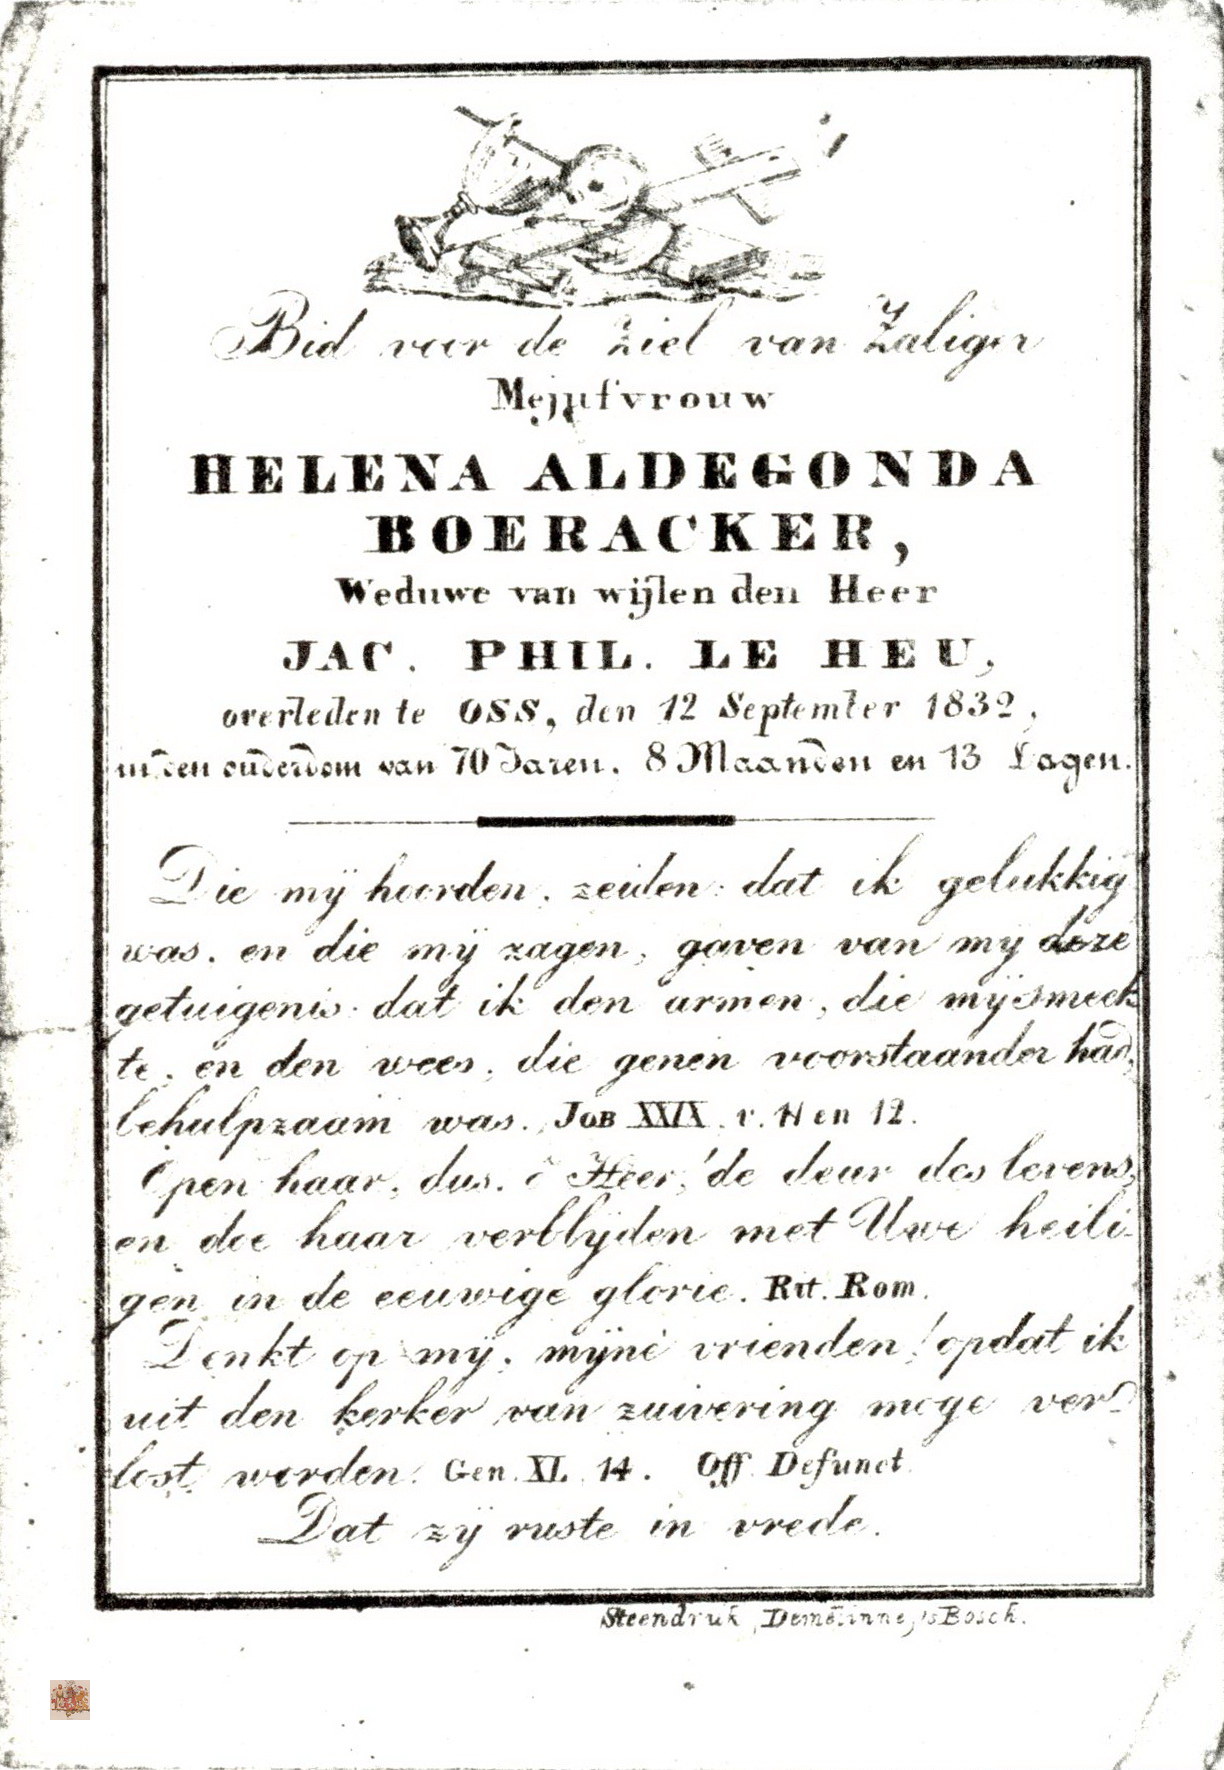 Bid voor de Ziel van Zaliger
Mejufvrouw
HELENA ALDEGONDA
BOERACKER,
Weduwe van wijlen den Heer
JAC. PHIL. LE HEU,
overleden te OSS, den 12 September 1832,
in den ouderdom van 70 Jaren, 8 Maanden en 13 Dagen.
Die mij hoorden, zeiden: dat ik gelukkig
was, en die mij zagen, gaven van mij deze
getuigenis: dat ik den armen, die mij smeek
te, en den wees, die genen voorstaander had,
behulpzaam was. JOB XXIX. v. 11 en 12.
Open haar, dus, ô Heer, de deur des levens,
en doe haar verblyden met Uwe heili-
gen in de eeuwige glorie. Rit. Rom.
Denkt op mij, mijne vrienden! opdat ik
uit den kerker van zuivering moge ver-
lost worden. Gen. XL. 14. Off. Defunct.
Dat zij ruste in vrede.
Steendruk, Demelinne, 's Bosch.